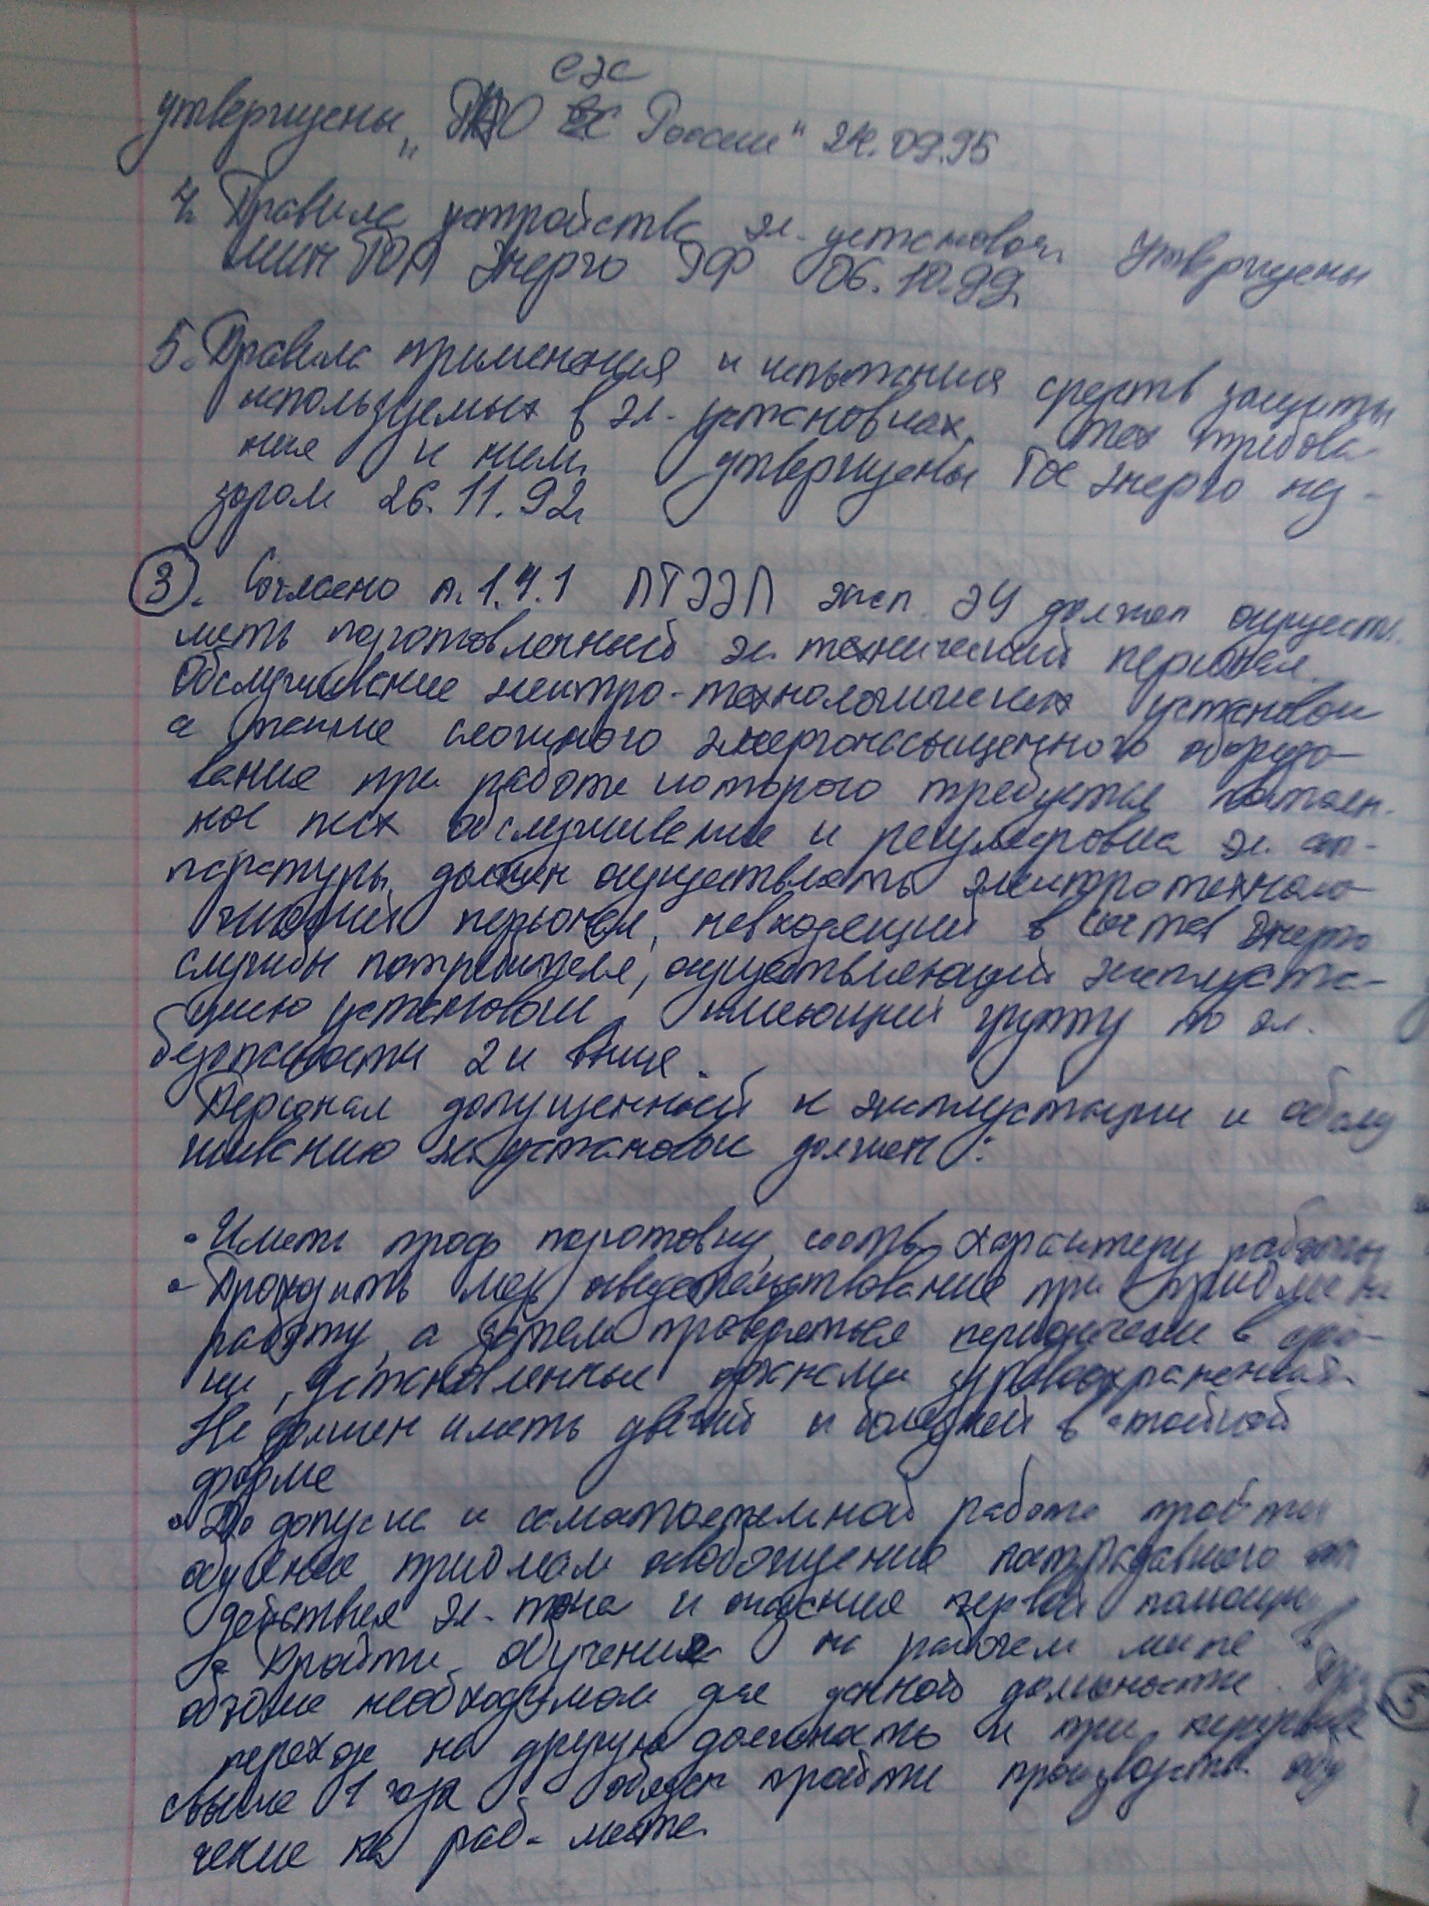 еэс
утверждены „РАО России" 24.09.95
4. Правила устройства эл. установок. Утверждены
мин ТОП Энерго РФ 06.10.99г.
5. Правила применения и испытания средств защиты
используемых в эл. установках, тех требова-
ния к ним. утверждены ГОС энерго над-
зором 26.11.92г
3. Согласно п.1.4.1 ПТЭЭП эксп. ЭУ должен осуществ.
лять подготовленный эл. технический персонал.
Обслуживание электро-технологических установок
а также сложного энергонасыщенного оборудо-
вания при работе которого требуется постоян.
ное тех обслуживание и регулировка эл. ап-
паратуры, должен осуществлять электротехноло-
гический персонал, невходящий в состав Энерго
службы потребителя, осуществляющий эксплуата-
цию установок, имеющий группу по эл.
безопасности 2 и выше.
Персонал допущенный к эксплуатации и обслу
живанию эл. установок должен:
• Иметь проф подготовку, соотв. характеру работы
• Проходить мед освидетельствование при приёме на
работу, а затем проверяться периодически в сро-
ки, установленные органами здравоохранений.
Не должен иметь увечий и болезней в стойкой
форме
• До допуска к самостоятельной работе пройти
обучение приёмам освобождения пострадавшего от
действия эл. тока и оказания первой помощи
• Пройти обучения на рабочем месте в
объёме необходимом для данной должности. При
переходе на другую должность и при перерыве
свыше 1 года обязан пройти производств. обу
чение на раб. месте.
5